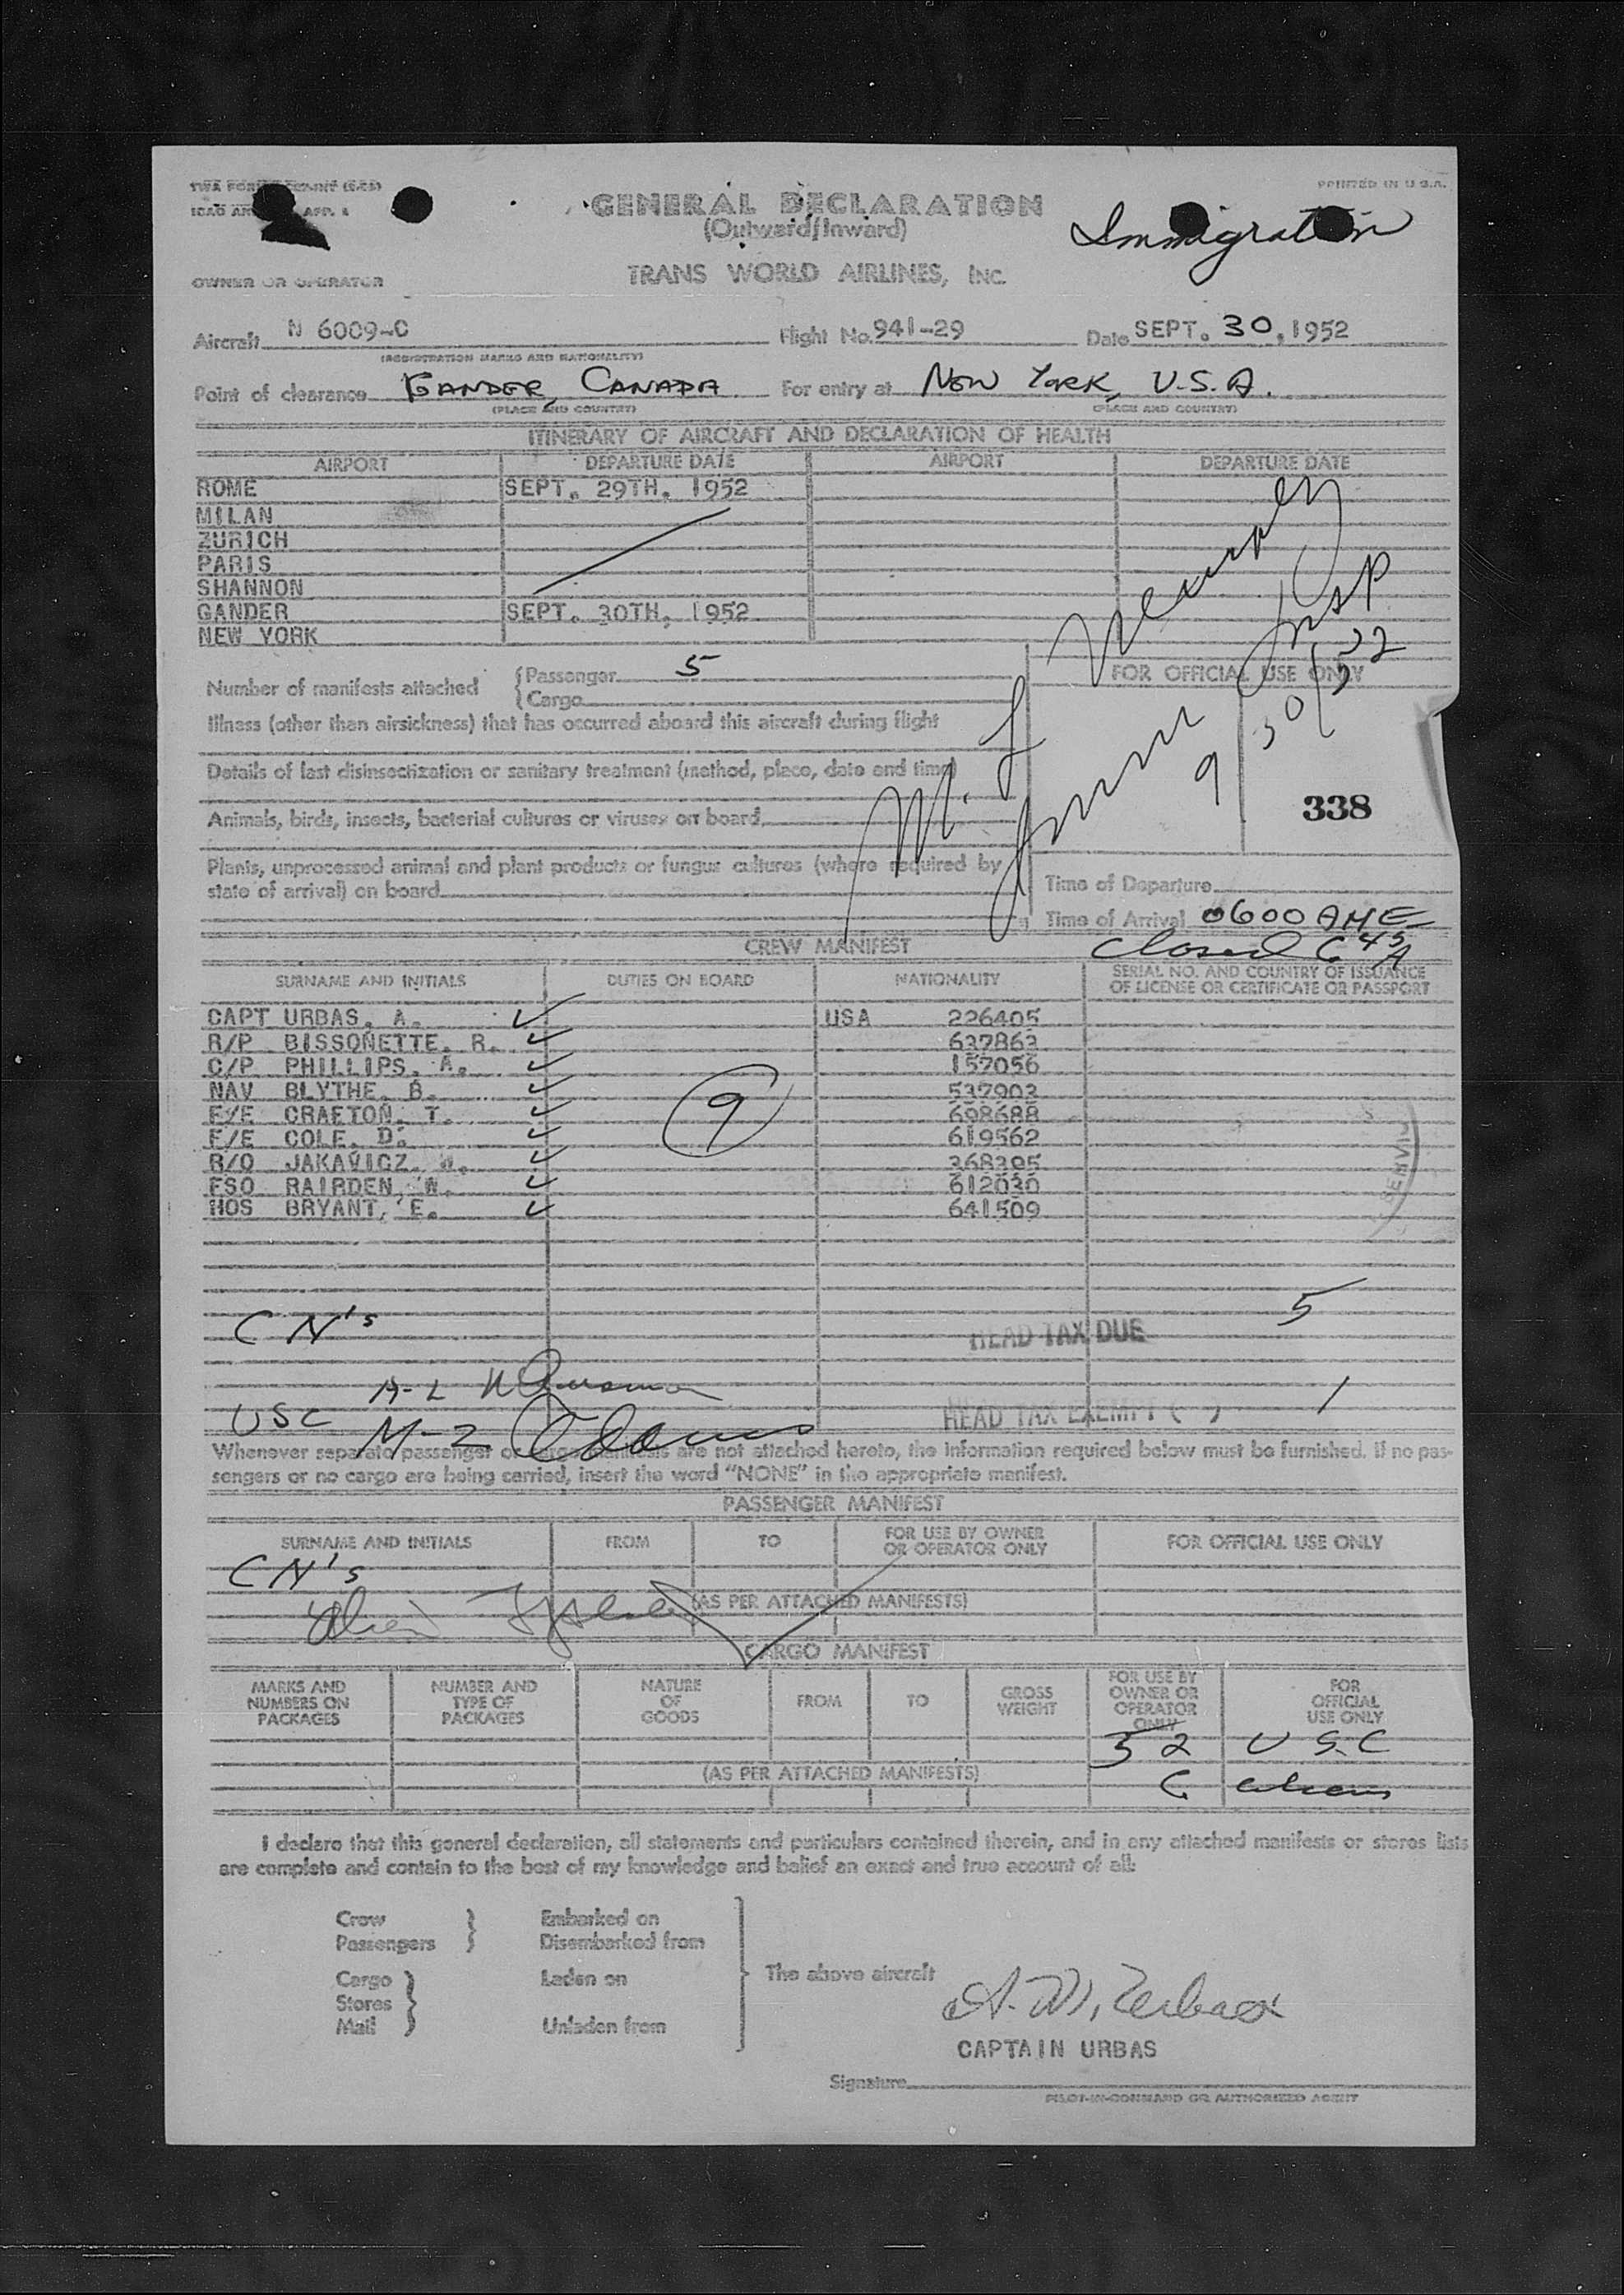 PRINTED IN U.S.A.
GENERAL DECLARATION
(Outward/Inward)
Immigration
TRANS WORLD AIRLINES, INC.
OWNER OR OPERATOR
Aircraft N 6009-C Flight No. 941-29 Date SEPT. 30, 1952
(REGISTRATION MARKS AND NATIONALITY)
Point of clearance GANDER, CANADA For entry at NEW YORK, U.S.A.
(PLACE AND COUNTRY) (PLACE AND COUNTRY)
ITINERARY OF AIRCRAFT AND DECLARATION OF HEALTH
AIRPORT DEPARTURE DATE AIRPORT DEPARTURE DATE
ROME SEPT. 29TH, 1952
MILAN
ZURICH
PARIS
SHANNON
GANDER SEPT. 30TH, 1952
NEW YORK
Number of manifests attached { Passenger 5
{ Cargo
FOR OFFICIAL USE ONLY
Illness (other than airsickness) that has occurred aboard this aircraft during flight
Details of last disinsectization or sanitary treatment (method, place, date and time)
Animals, birds, insects, bacterial cultures or viruses on board
338
Plants, unprocessed animal and plant products or fungus cultures (where required by
state of arrival) on board
Time of Departure
Time of Arrival 0600 AME
Closed 6 45 A
CREW MANIFEST
SURNAME AND INITIALS DUTIES ON BOARD NATIONALITY SERIAL NO. AND COUNTRY OF ISSUANCE
OF LICENSE OR CERTIFICATE OR PASSPORT
CAPT URBAS, A. USA 226405
R/P BISSONETTE, R. 637863
C/P PHILLIPS, A. 157056
NAV BLYTHE, B. 537903
F/E CRAFTON, T. 698688
F/E COLE, D. 619562
R/O JAKAVICZ, 368395
FSO RAIRDEN, W. 612030
HOS BRYANT, E. 641509
9
CN's
HEAD TAX DUE 5
A-L
USC M-2
HEAD TAX EXEMPT ( ) 1
Whenever separate passenger or cargo manifests are not attached hereto, the information required below must be furnished. If no pas-
sengers or no cargo are being carried, insert the word "NONE" in the appropriate manifest.
PASSENGER MANIFEST
SURNAME AND INITIALS FROM TO FOR USE BY OWNER
OR OPERATOR ONLY FOR OFFICIAL USE ONLY
CN's
(AS PER ATTACHED MANIFESTS)
CARGO MANIFEST
MARKS AND
NUMBERS ON
PACKAGES NUMBER AND
TYPE OF
PACKAGES NATURE
OF
GOODS FROM TO GROSS
WEIGHT FOR USE BY
OWNER OR
OPERATOR
ONLY FOR
OFFICIAL
USE ONLY
52 USC
(AS PER ATTACHED MANIFESTS)
6 aliens
I declare that this general declaration, all statements and particulars contained therein, and in any attached manifests or stores lists
are complete and contain to the best of my knowledge and belief an exact and true account of all:
Crew
Passengers } Embarked on
Disembarked from
Cargo
Stores
Mail } Laden on
Unladen from
The above aircraft
CAPTAIN URBAS
Signature
PILOT-IN-COMMAND OR AUTHORIZED AGENT